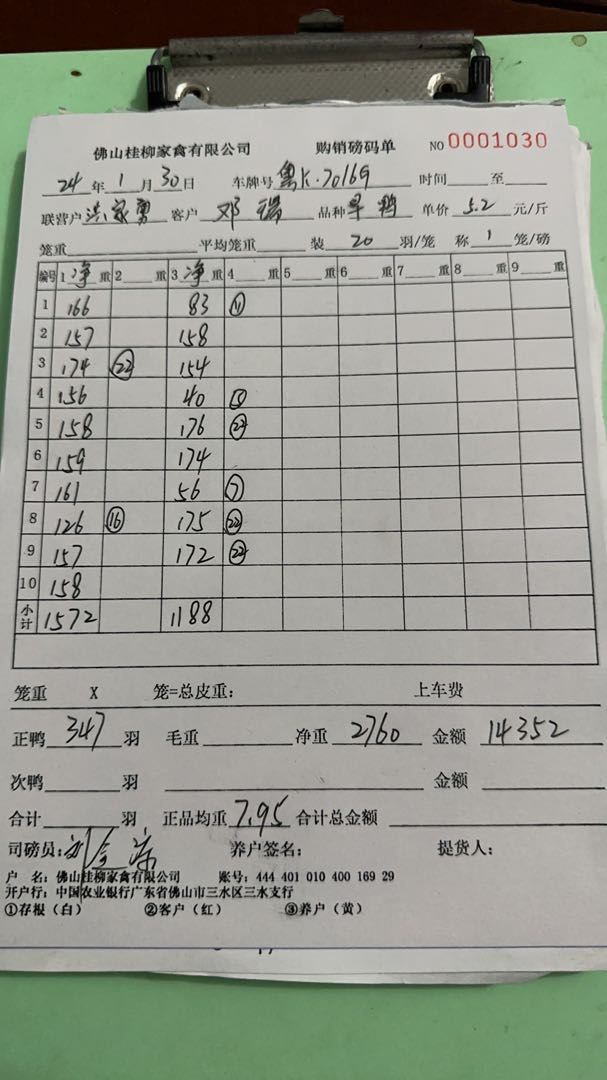 佛山桂柳家禽有限公司 购销磅码单 NO 0001030
24年1月30日 车牌号 粤K·70169 时间 至
联营户 洪家勇 客户 邓瑞 品种 旱鸭 单价 5.2 元/斤
笼重 平均笼重 装 20 羽/笼 称 1 笼/磅
编号 1 净 重 2 重 3 净 重 4 重 5 重 6 重 7 重 8 重 9 重
1 166 83 ⑪
2 157 158
3 174 ㉒ 154
4 156 40 ⑤
5 158 176 ㉒
6 159 174
7 161 56 ⑦
8 126 ⑯ 175 ㉒
9 157 172 ㉒
10 158
小计 1572 1188
笼重 X 笼=总皮重: 上车费
正鸭 347 羽 毛重 净重 2760 金额 14352
次鸭 羽 金额
合计 羽 正品均重 7.95 合计总金额
司磅员: 养户签名: 提货人:
户 名: 佛山桂柳家禽有限公司 账号: 444 401 010 400 169 29
开户行: 中国农业银行广东省佛山市三水区三水支行
①存根（白） ②客户（红） ③养户（黄）